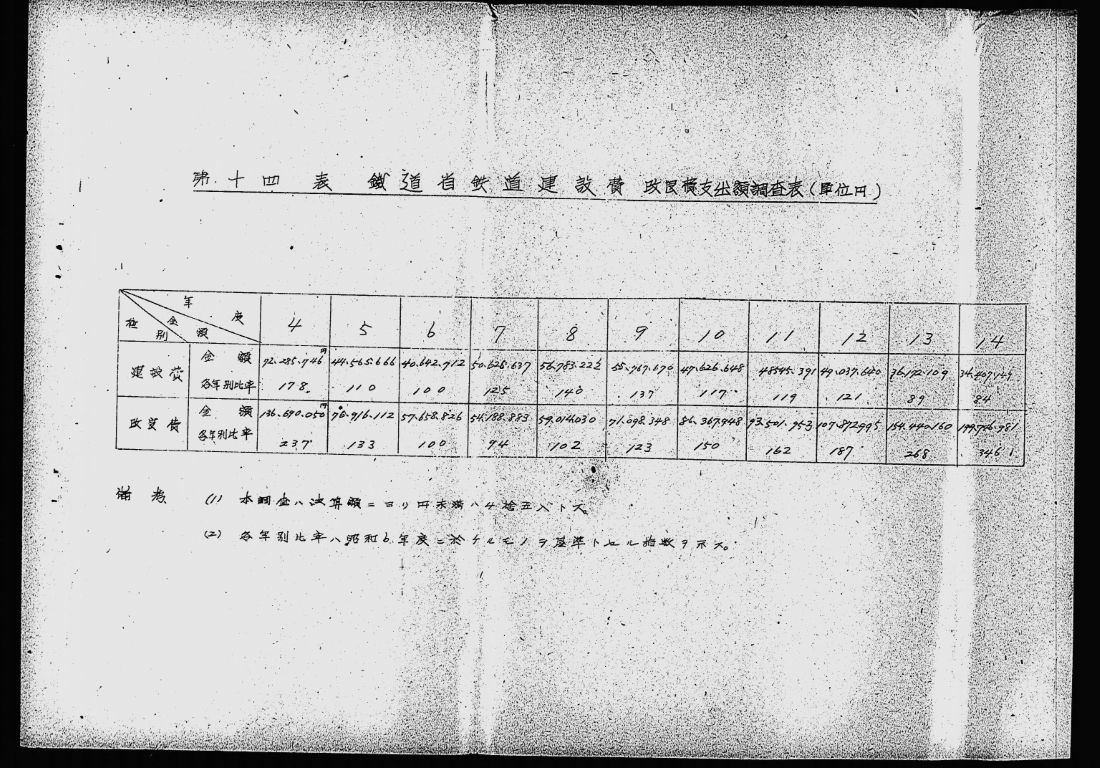 第十四表 鐵道省鉄道建設費 改良費支出額調査表(單位円)
年度 金額 種別 4 5 6 7 8 9 10 11 12 13 14
建設費 金額 72.285.746円 44.565.666 40.642.912 50.628.637 56.783.222 55.767.676 47.626.648 48545.391 49.037.640 36.172.109
各年別比率 178 110 100 125 140 137 117 119 121 89 84
改良費 金額 136.690.050円 76.916.112 57.658.826 54.188.883 59.014.030 71.098.348 86.367.948 93.501.953 107.872.995 154.440.160 199.706.981
各年別比率 237 133 100 94 102 123 150 162 187 268 346
備考 (1) 本調査ハ決算額ニヨリ円未満ハ4捨五入トス
(2) 各年別比率ハ昭和6年度ニ於ケルモノヲ基準トセル指数ヲ示ス。